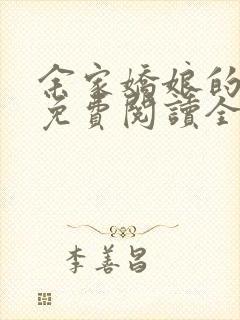 余家嬌娘的
免費閱讀全
李善昌